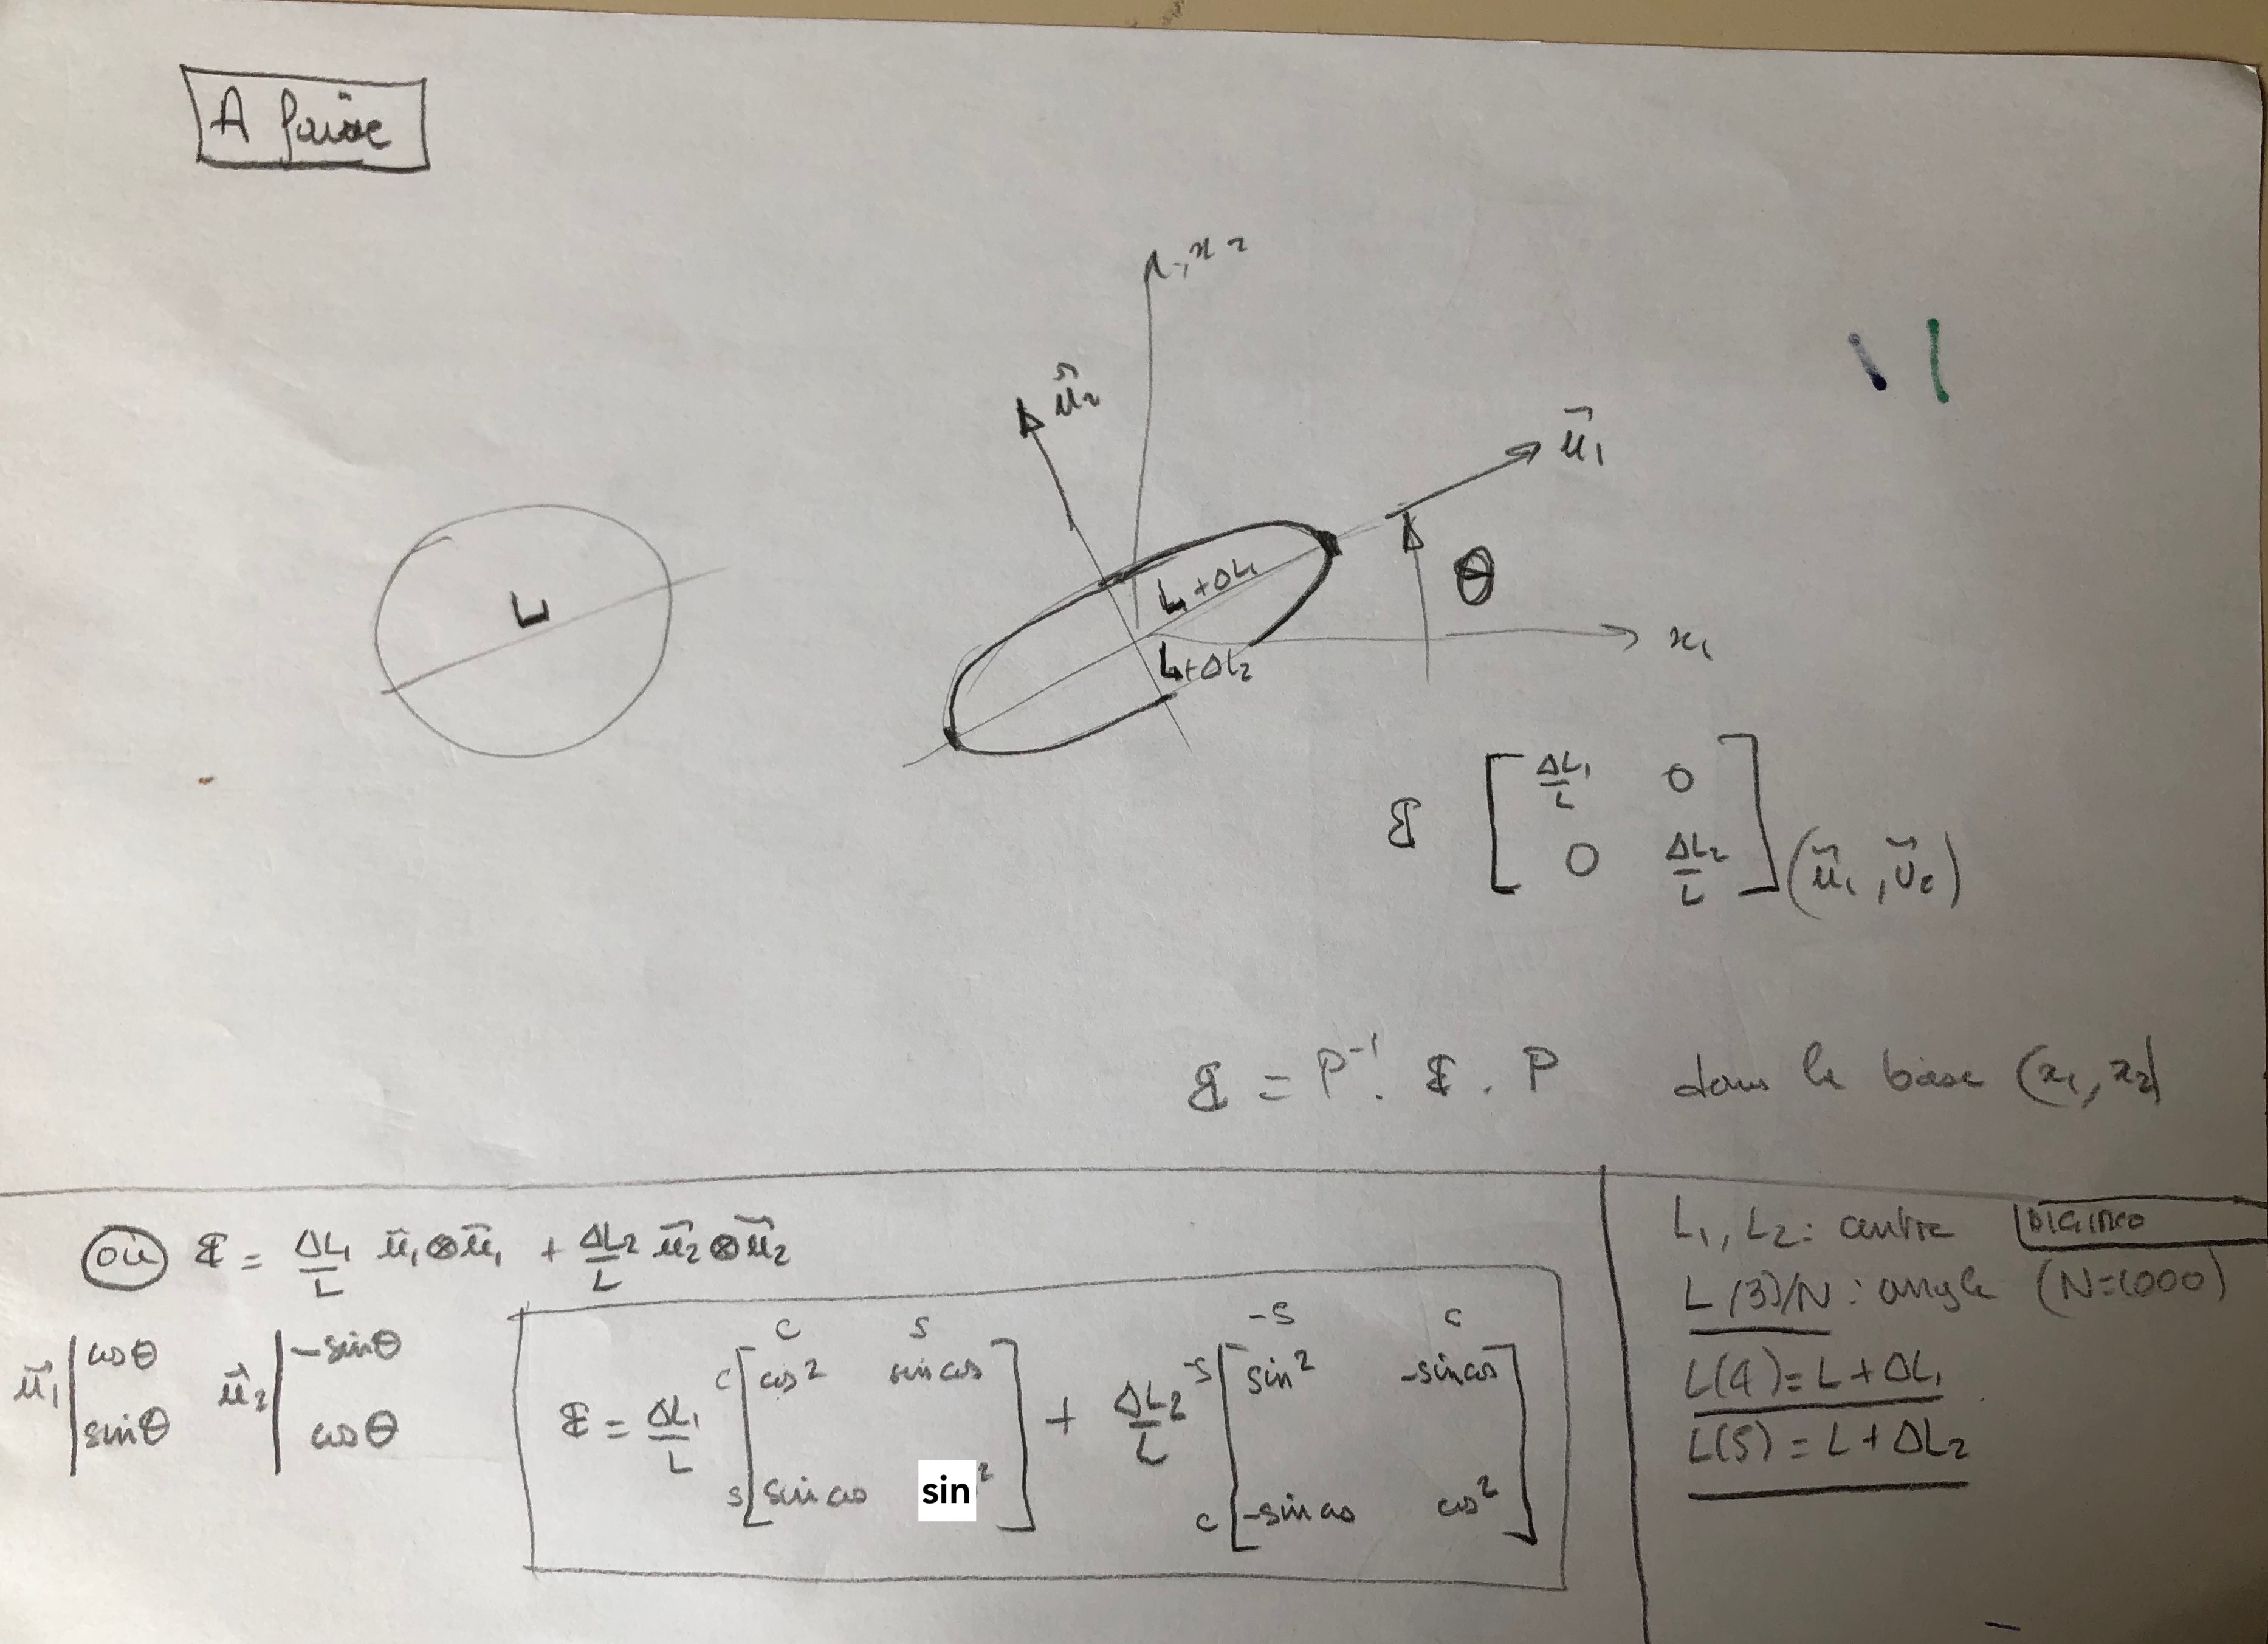 A faire
x2
u⃗2
u⃗1
L
L+ΔL1
θ
L+ΔL2
x1
𝔼 [ ΔL1/L 0
0 ΔL2/L ] (u⃗1, u⃗2)
𝔼 = P⁻¹ . 𝔼 . P dans la base (x1, x2)
où 𝔼 = ΔL1/L u⃗1⊗u⃗1 + ΔL2/L u⃗2⊗u⃗2
u⃗1 | cosθ u⃗2 | -sinθ
sinθ cosθ
c s -s c
c [ cos² sin cos ] -s [ sin² -sin cos ]
𝔼 = ΔL1/L + ΔL2/L
s [ sin cos sin² ] c [ -sin cos cos² ]
L1, L2 : centre
L(3)/N : angle (N=1000)
L(4) = L + ΔL1
L(5) = L + ΔL2